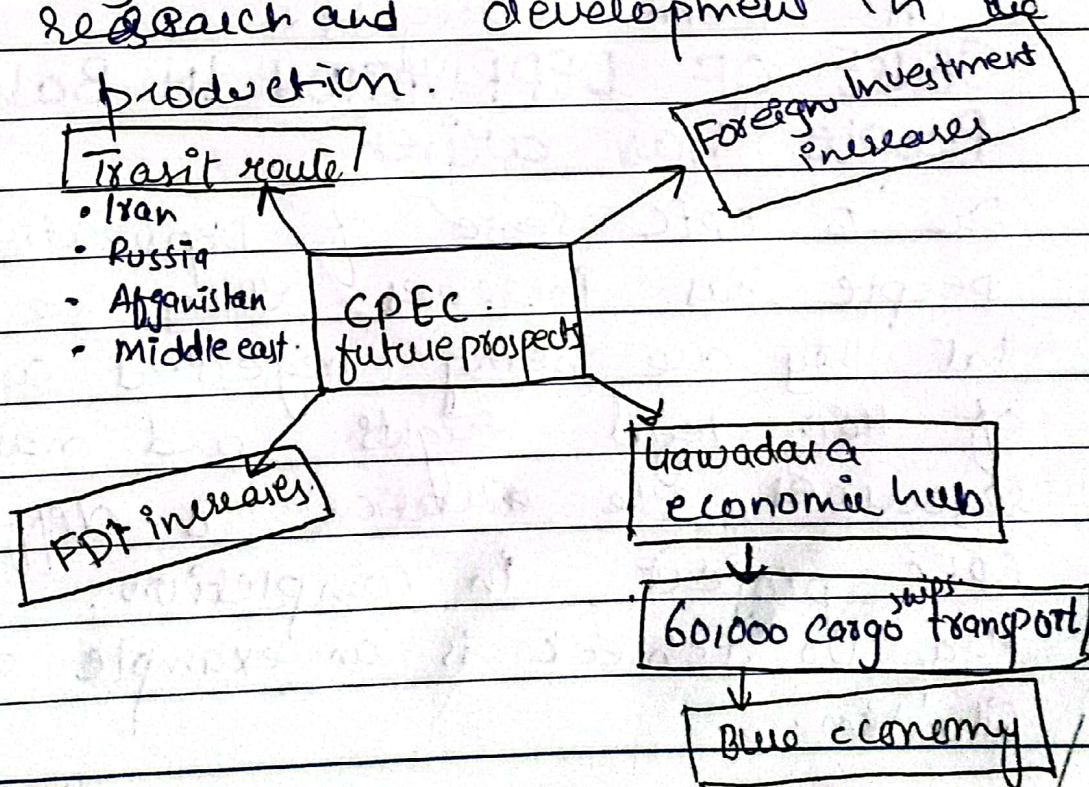 research and development in
production.
Trasit route
• Iran
• Russia
• Afganistan
• Middle east.
Foreign Investment
increases
CPEC.
future prospects
FDI increases.
Gawadar a
economic hub
60,000 cargo ships transport
Blue economy